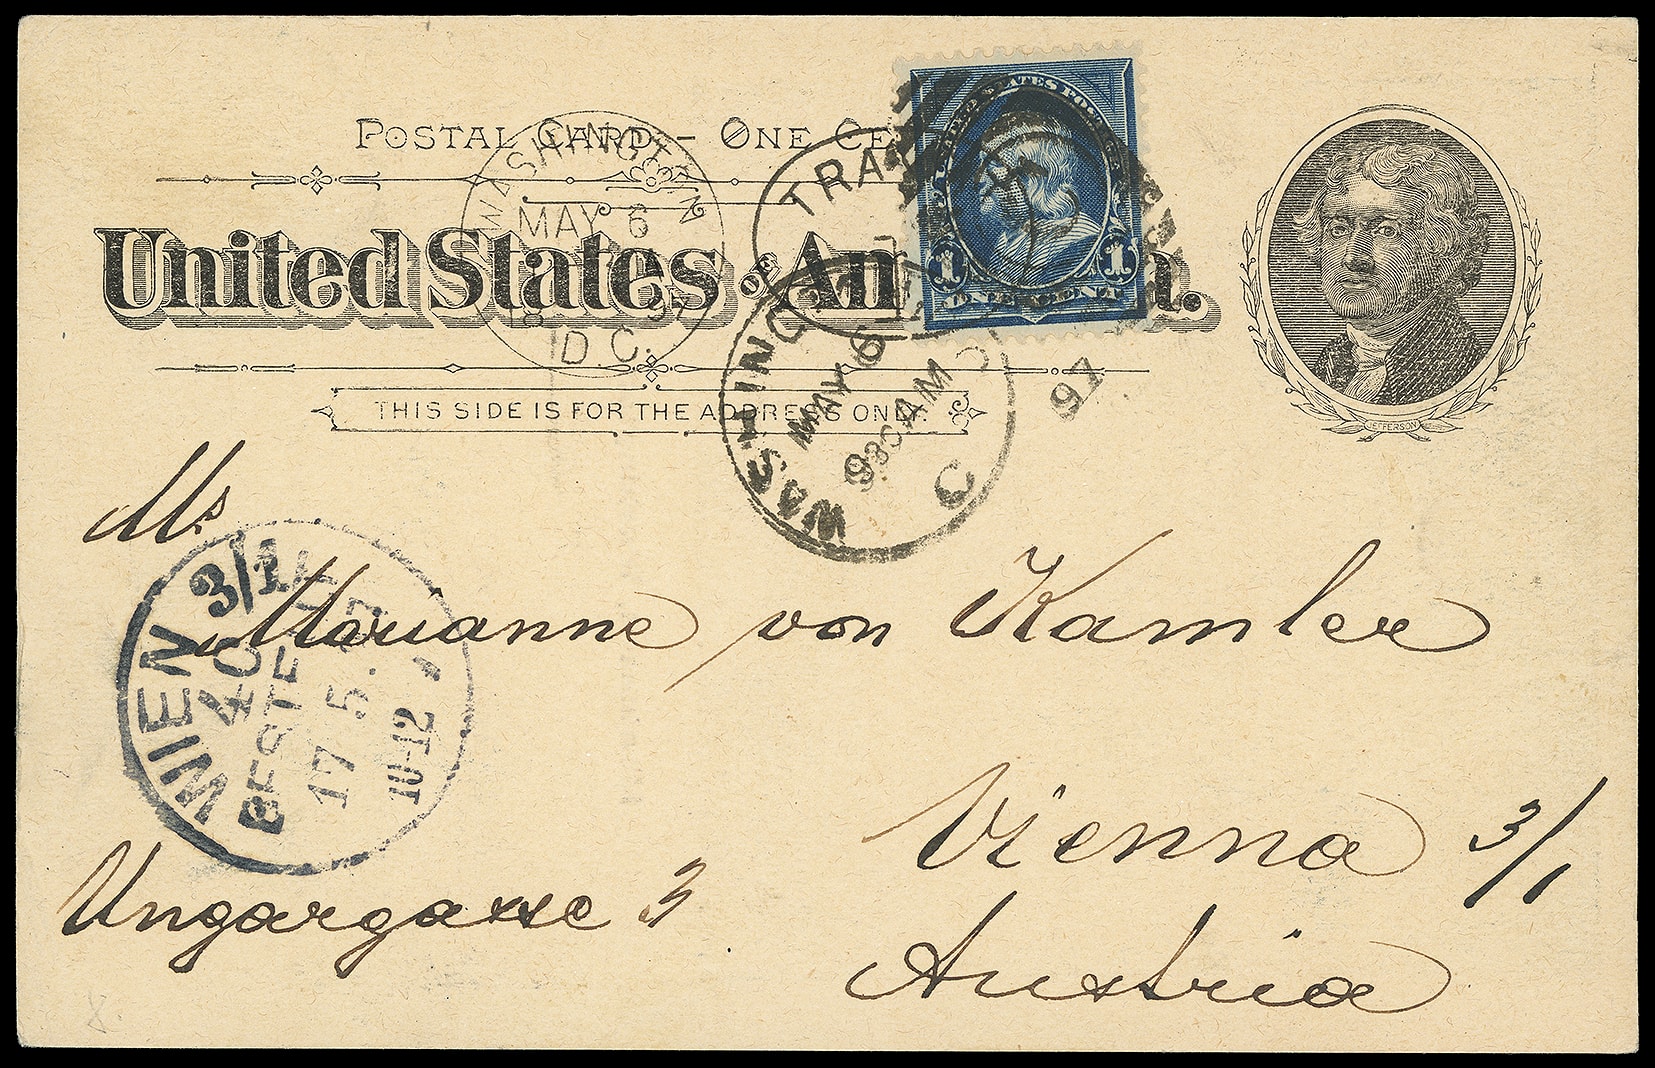 POSTAL CARD - ONE CE
United States of Am
THIS SIDE IS FOR THE ADDRESS ONLY.
JEFFERSON
1 1
ONE CENT
WASHINGTON
MAY 6
97
D.C.
TRA
WASHIN
MAY 6
830AM
C
97
Ms
Marianne von Kamler
Vienna 3/1
Ungargasse 3
Austria
WIEN 3/1
BESTE
17 5.
10-12